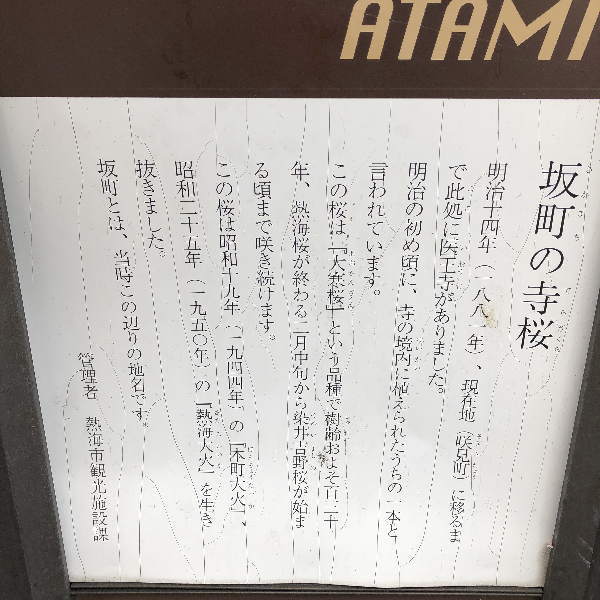 ATAMI
坂町の寺桜
明治十四年(一八八一年)、現在地(咲見町)に移るま
で此処に医王寺がありました。
明治の初め頃に、寺の境内に植えられたうちの一本と
言われています。
この桜は、「大寒桜」という品種で樹齢およそ百二十
年、熱海桜が終わる二月中旬から染井吉野桜が始ま
る頃まで咲き続けます。
この桜は昭和十九年(一九四四年)の「本町大火」、
昭和二十五年(一九五〇年)の「熱海大火」を生き
抜きました。
坂町とは、当時この辺りの地名です。
管理者 熱海市観光施設課